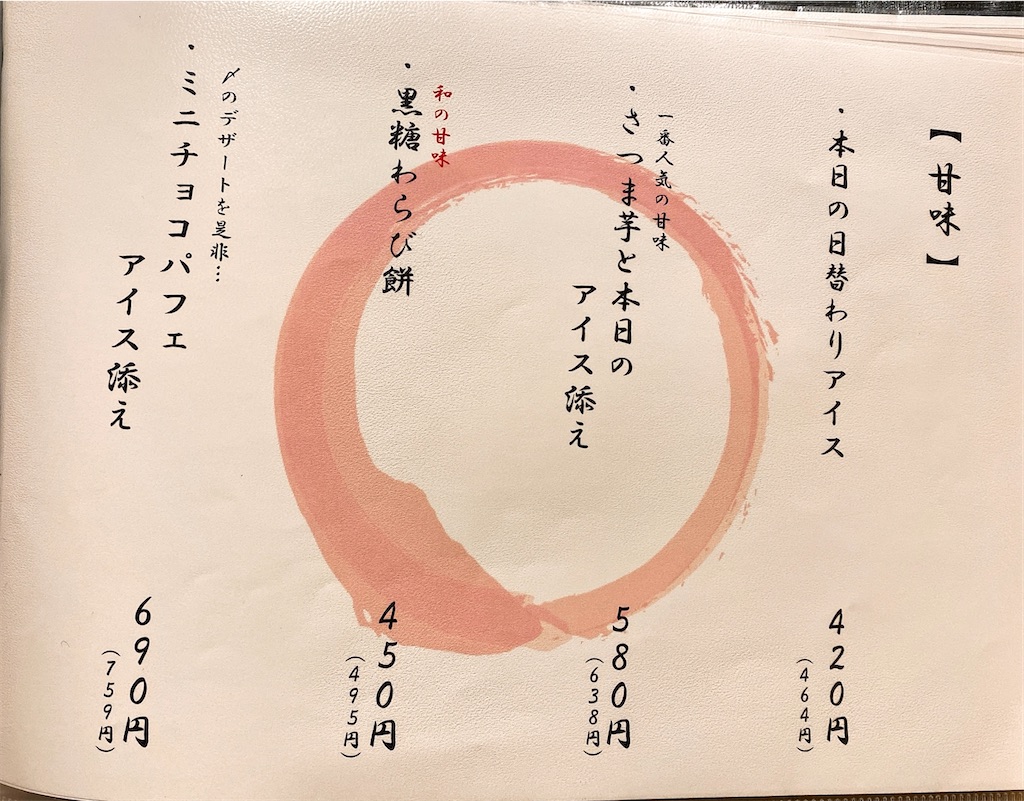 【甘味】
・本日の日替わりアイス
420円
(464円)
一番人気の甘味
・さつま芋と本日の
アイス添え
580円
(638円)
和の甘味
・黒糖わらび餅
450円
(495円)
〆のデザートを是非…
・ミニチョコパフェ
アイス添え
690円
(759円)